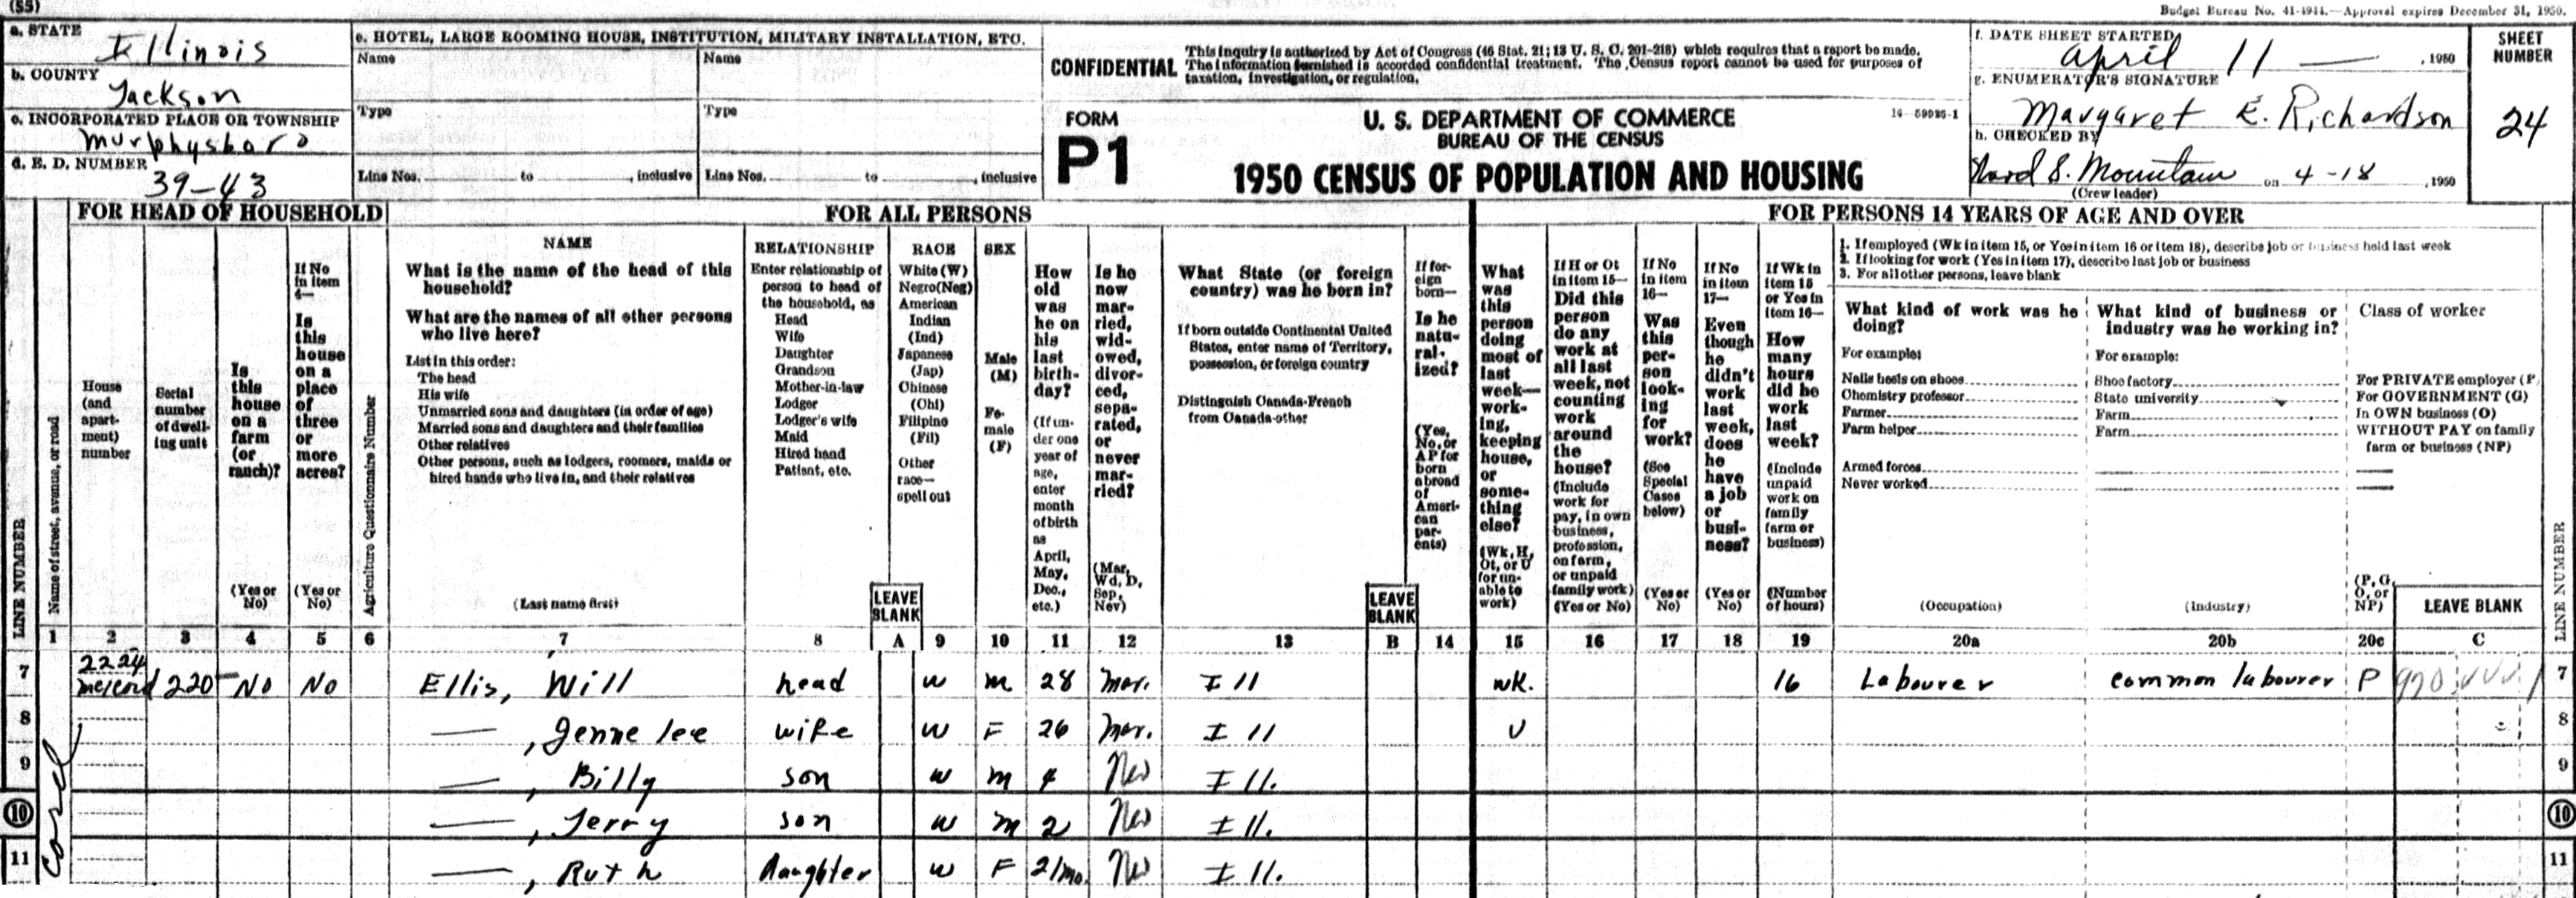 (55)
Budget Bureau No. 41-4944.—Approval expires December 31, 1950.
a. STATE Illinois
b. COUNTY Jackson
c. INCORPORATED PLACE OR TOWNSHIP Murphysboro
d. E. D. NUMBER 39-43
e. HOTEL, LARGE ROOMING HOUSE, INSTITUTION, MILITARY INSTALLATION, ETC.
Name Name
Type Type
Line Nos. to , inclusive Line Nos. to , inclusive
CONFIDENTIAL This inquiry is authorized by Act of Congress (46 Stat. 21; 13 U. S. C. 201-218) which requires that a report be made.
The information furnished is accorded confidential treatment. The Census report cannot be used for purposes of
taxation, investigation, or regulation.
FORM P1
U. S. DEPARTMENT OF COMMERCE
BUREAU OF THE CENSUS
1950 CENSUS OF POPULATION AND HOUSING
f. DATE SHEET STARTED April 11 — , 1950
g. ENUMERATOR'S SIGNATURE Margaret E. Richardson
h. CHECKED BY S. Mountain on 4-18, 1950
(Crew leader)
SHEET NUMBER 24
FOR HEAD OF HOUSEHOLD
FOR ALL PERSONS
FOR PERSONS 14 YEARS OF AGE AND OVER
LINE NUMBER
Name of street, avenue, or road
House (and apartment) number
Serial number of dwelling unit
Is this house on a farm (or ranch)? (Yes or No)
If No in item 4— Is this house on a place of three or more acres? (Yes or No)
Agriculture Questionnaire Number
NAME
What is the name of the head of this household?
What are the names of all other persons who live here?
List in this order:
The head
His wife
Unmarried sons and daughters (in order of age)
Married sons and daughters and their families
Other relatives
Other persons, such as lodgers, roomers, maids or hired hands who live in, and their relatives
(Last name first)
RELATIONSHIP
Enter relationship of person to head of the household, as
Head
Wife
Daughter
Grandson
Mother-in-law
Lodger
Lodger's wife
Maid
Hired hand
Patient, etc.
LEAVE BLANK
RACE
White (W)
Negro(Neg)
American Indian (Ind)
Japanese (Jap)
Chinese (Chi)
Filipino (Fil)
Other race—spell out
SEX
Male (M)
Female (F)
How old was he on his last birthday? (If under one year of age, enter month of birth as April, May, Dec., etc.)
Is he now married, widowed, divorced, separated, or never married? (Mar, Wd, D, Sep, Nev)
What State (or foreign country) was he born in?
If born outside Continental United States, enter name of Territory, possession, or foreign country
Distinguish Canada-French from Canada-other
LEAVE BLANK
If foreign born— Is he naturalized? (Yes, No, or AP for born abroad of American parents)
What was this person doing most of last week—working, keeping house, or something else? (Wk, H, Ot, or U for unable to work)
If H or Ot in item 15— Did this person do any work at all last week, not counting work around the house? (Include work for pay, in own business, profession, on farm, or unpaid family work) (Yes or No)
If No in item 16— Was this person looking for work? (See Special Cases below) (Yes or No)
If No in item 17— Even though he didn't work last week, does he have a job or business? (Yes or No)
If Wk in item 15 or Yes in item 16— How many hours did he work last week? (Include unpaid work on family farm or business) (Number of hours)
1. If employed (Wk in item 15, or Yes in item 16 or item 18), describe job or business held last week
2. If looking for work (Yes in item 17), describe last job or business
3. For all other persons, leave blank
What kind of work was he doing? What kind of business or industry was he working in? Class of worker
For example: For example:
Nails heels on shoes Shoe factory For PRIVATE employer (P)
Chemistry professor State university For GOVERNMENT (G)
Farmer Farm In OWN business (O)
Farm helper Farm WITHOUT PAY on family farm or business (NP)
Armed forces
Never worked
(Occupation) (Industry) (P, G, O, or NP) LEAVE BLANK
LINE NUMBER
1 2 3 4 5 6 7 8 A 9 10 11 12 13 B 14 15 16 17 18 19 20a 20b 20c C
7 2224 220 No No Ellis, Will head W M 28 Mar. Ill wk. 16 Labourer common labourer P 7
8 —, Jenne lee wife W F 26 Mar. Ill U 8
9 —, Billy son W M 4 Nev Ill. 9
10 —, Jerry son W M 2 Nev Ill. 10
11 —, Ruth daughter W F 21mo. Nev Ill. 11